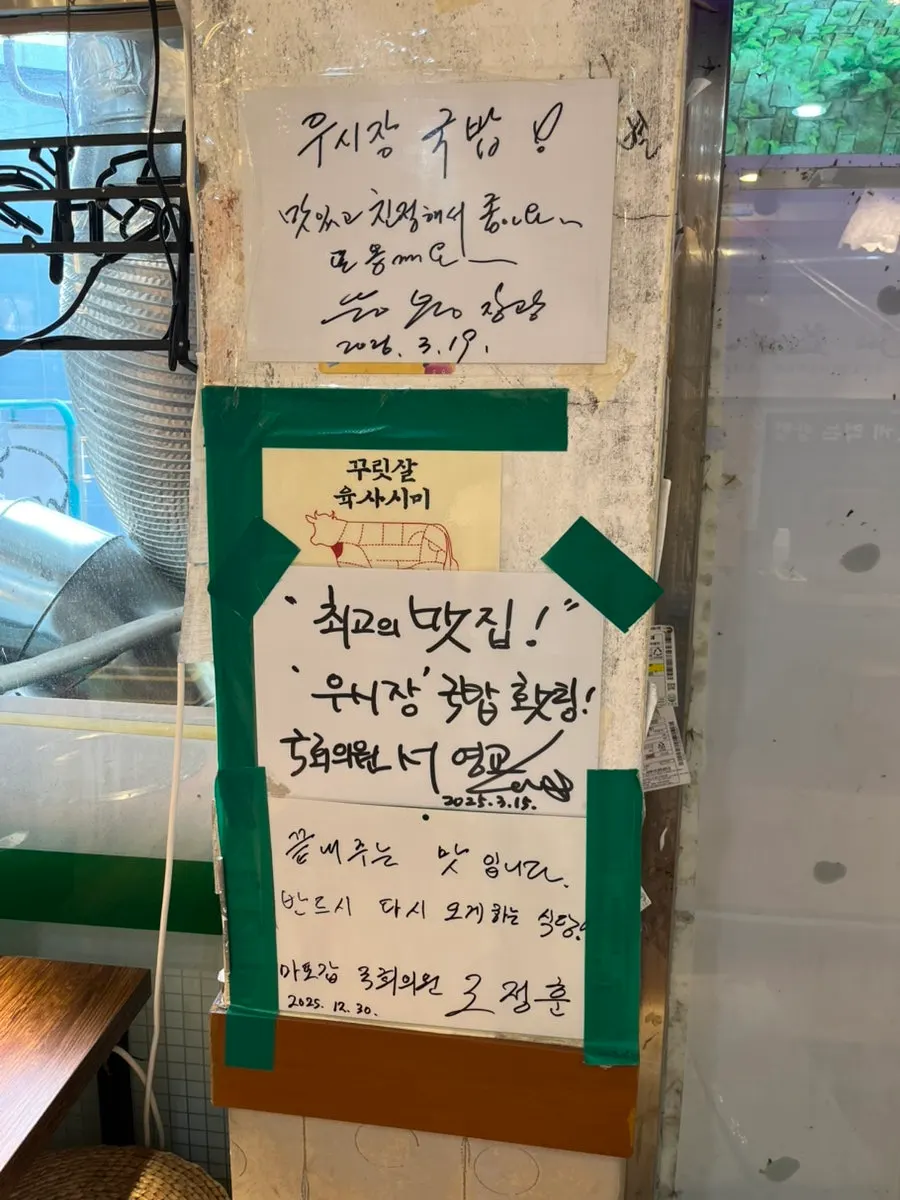 우시장 국밥!
맛있고 친절해서 좋아요~
또 올께요~
장광
2026. 3. 19.
꾸릿살
육사시미
"최고의 맛집!"
'우시장' 국밥 홧팅!
국회의원 서영교
2025.3.15.
끝내주는 맛입니다.
반드시 다시 오게하는 식당!
마포갑 국회의원 조정훈
2025. 12. 30.